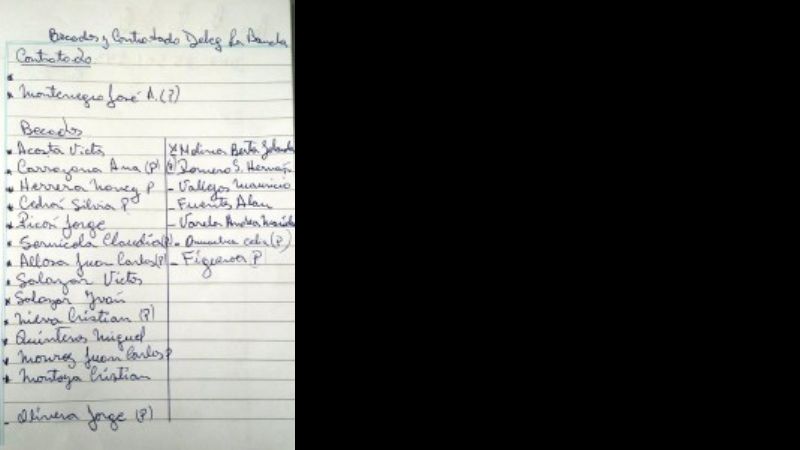 Becados y Contratado Deleg La Banda
Contratado
Montenegro José A. (P)
Becados
Acosta Victor
Carrazana Ana (P)
Herrera Nancy P
Silvia P
Picón Jorge
Sernicola Claudia (P)
Juan Carlos (P)
Salazar Victor
Salazar Iván
Cristian (P)
Quinteros Miguel
Juan Carlos P
Montoya Cristian
Olivera Jorge (P)
Molina Berta
Romero S. Hernán
- Vallejos Mauricio
- Fuentes Alan
- Varela Andrea
(P)
- Figueroa P